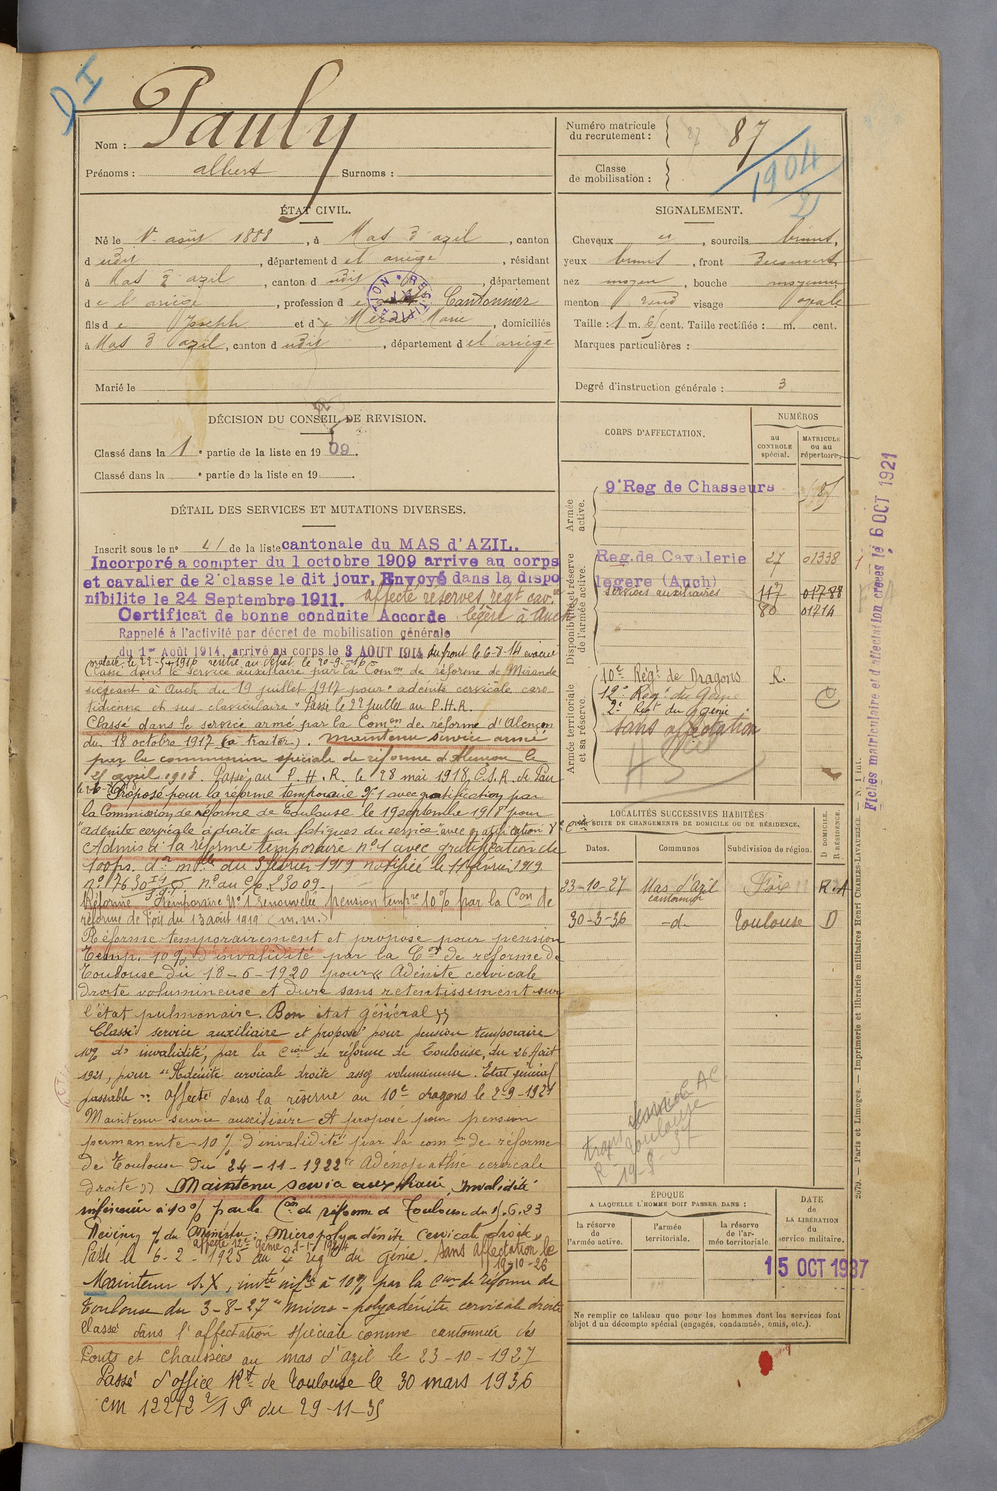 DI
Nom : Pauly
Prénoms : albert Surnoms :
Numéro matricule du recrutement : 87
Classe de mobilisation :
1904
ÉTAT CIVIL.
Né le août 1888, à Mas d'azil, canton
d udit, département d el ariège, résidant
à Mas d azil, canton d udit, département
d e l ariège, profession d e Cantonnier
RECTIFICATION
fils d e Joseph et d e Marie, domiciliés
à Mas d azil, canton d udit, département d el ariège
Marié le
SIGNALEMENT.
Cheveux et, sourcils bruns,
yeux bruns, front Découvert
nez moyen, bouche moyenne
menton rond visage ovale
Taille : 1 m. 6 cent. Taille rectifiée : m. cent.
Marques particulières :
Degré d'instruction générale : 3
DÉCISION DU CONSEIL DE REVISION.
Classé dans la 1 e partie de la liste en 19 09.
Classé dans la e partie de la liste en 19
CORPS D'AFFECTATION.
NUMÉROS
au CONTROLE spécial.
MATRICULE ou au répertoire.
Armée active.
9e Reg de Chasseurs
Disponibilité et réserve de l'armée active.
Reg. de Cavalerie 27 01338
légere (Auch)
Services auxiliaires 117 01788
80 01714
Armée territoriale et sa réserve.
10e Régt de Dragons R.
12e Régt du Génie
2e Régt du Génie
Sans affectation
DÉTAIL DES SERVICES ET MUTATIONS DIVERSES.
Inscrit sous le n° 41 de la liste cantonale du MAS d'AZIL.
Incorporé a compter du 1 octobre 1909 arrive au corps
et cavalier de 2e classe le dit jour, Envoyé dans la dispo
nibilite le 24 Septembre 1911. affecté réserves régt cav.
Certificat de bonne conduite Accorde légère à Auch
Rappelé à l'activité par décret de mobilisation générale
du 1er Août 1914, arrivé au corps le 3 AOUT 1914 du front le 6-8-14 évacué
malade le 22-5-1916 rentré au dépôt le 20-9-16
Classé dans le service auxiliaire par la Comon de réforme de Mirande
siégeant à Auch du 19 juillet 1917 pour "adénite cervicale caro
tidienne et sus-claviculaire" Passé le 22 juillet au P.H.R.
Classé dans le service armé par la Comon de réforme d'Alençon
du 18 octobre 1917 (a traiter). Maintenu service armé
par la commission spéciale de réforme d'Alençon le
25 avril 1918. Passé au P.H.R. le 28 mai 1918 C.S.R. de Pau
Proposé pour la réforme temporaire n°1 avec gratification par
la Commission de réforme de Toulouse le 19 septembre 1918 pour
"adénite cervicale à droite par fatigues du service" avec gratification 8e Catie
Admis à la réforme temporaire n°1 avec gratification de
100frs. don mlle du 3 février 1919 notifiée le 11 février 1919
Réformé Temporaire N°1 renouvelée pension tempre 10% par la Con de
réforme de Foix du 13 août 1919 (m.m.)
Réformé temporairement et proposé pour pension
Temp. 10% d'invalidité par la Con de réforme de
Toulouse du 18-6-1920 pour "Adénite cervicale
droite volumineuse et dure sans retentissement sur
l'état pulmonaire. Bon état général"
Classé service auxiliaire et proposé pour pension temporaire
10% d'invalidité, par la Cion de réforme de Toulouse, du 26 Août
1921, pour "Adénite cervicale droite assez volumineuse. Etat général
passable". Affecté dans la réserve au 10e dragons le 2-9-1921
Maintenu service auxiliaire et proposé pour pension
permanente 10% d'invalidité par la comon de réforme
de Toulouse du 24-11-1922 "Adénopathie cervicale
droite" Maintenu service auxiliaire, Invalidité
inférieure à 10% par la Con de réforme de Toulouse du 1.6.23
Décision du Ministre : Micropolyadénite cervicale droite
affecté 12e Génie
Passé le 6-2-1925 au 2e rég du Génie. Sans affectation le
19-10-26
Maintenu S.X, invté infre à 10% par la Cion de réforme de
Toulouse du 3-8-27 "micro-polyadénite cervicale droite
Classé dans l'affectation spéciale comme cantonnier des
Ponts et Chaussées au mas d'azil le 23-10-1927
Passé d'office Rt de Toulouse le 30 mars 1936
CM 12272 2/1 Pa du 29-11-35
LOCALITÉS SUCCESSIVES HABITÉES
PAR SUITE DE CHANGEMENTS DE DOMICILE OU DE RÉSIDENCE.
Dates. Communes Subdivision de région. D DOMICILE. R RÉSIDENCE.
23-10-27 Mas d'azil Foix R.A
cantonnier
30-3-36 -d- Toulouse D
Toulouse
19-8-37
ÉPOQUE
A LAQUELLE L'HOMME DOIT PASSER DANS :
la réserve de l'armée active.
l'armée territoriale.
la réserve de l'armée territoriale.
DATE de LA LIBÉRATION du service militaire.
15 OCT 1937
Ne remplir ce tableau que pour les hommes dont les services font
l'objet d'un décompte spécial (engagés, condamnés, omis, etc.).
Fiches matriculaire et d'affectation créées le 6 OCT 1921
2679. — Paris et Limoges. — Imprimerie et librairie militaires Henri CHARLES-LAVAUZELLE. N. 1 int.